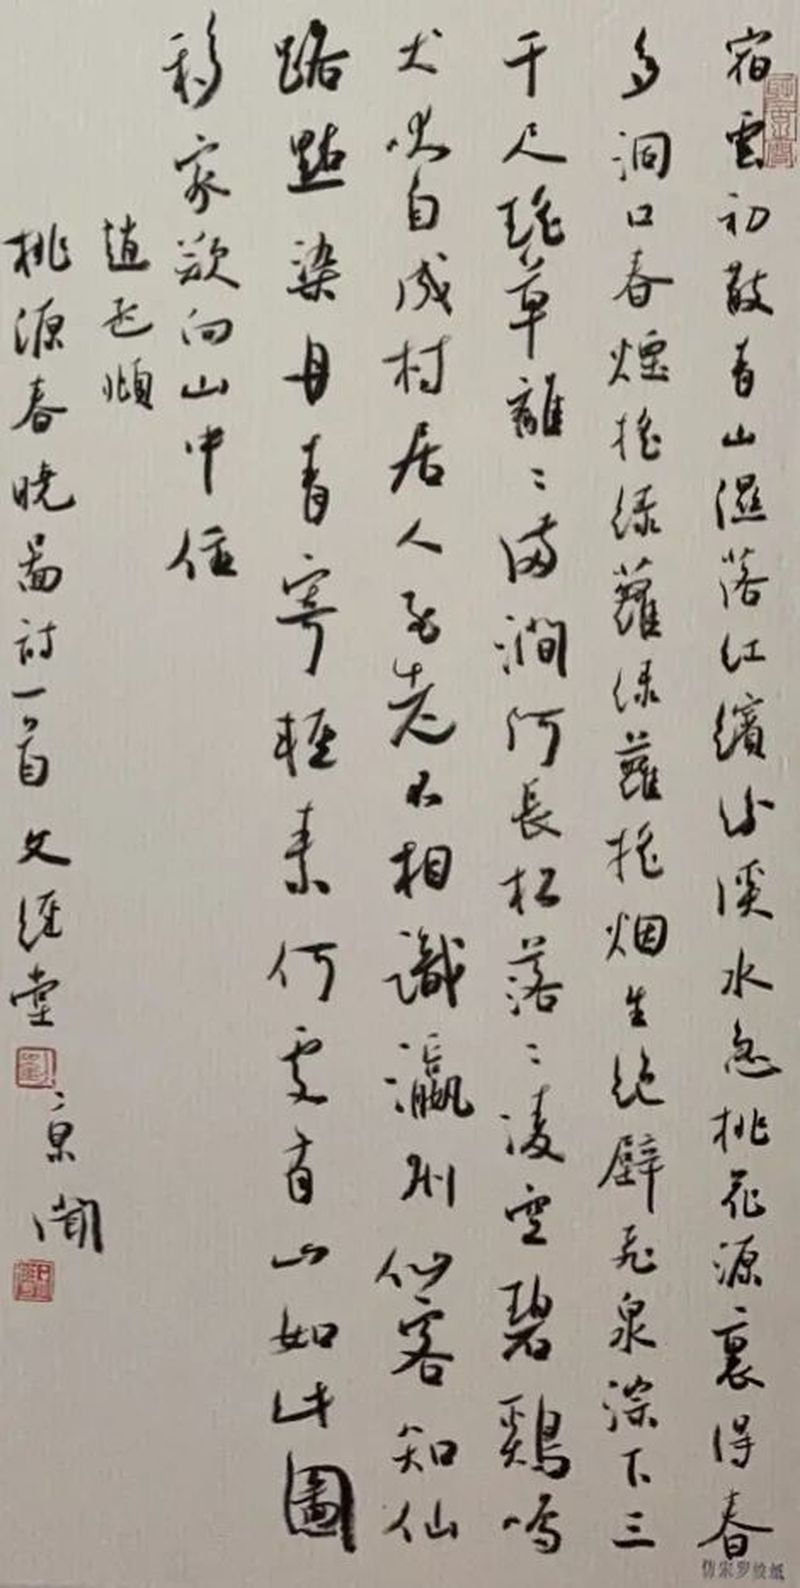 宿雲初散青山濕落紅繽紛溪水急桃花源裏得春
多洞口春煙搖緑蘿緑蘿搖烟生絶壁飛泉淙下三
千尺瑤草離〻滿澗阿長松落〻凌空碧鷄鳴
犬吠自成村居人至老不相識瀛洲仙客知仙
路點染丹青寄輕素何處有山如此圖
移家欲向山中住
趙孟頫
桃源春曉圖詩一首 文經堂
仿宋罗纹纸